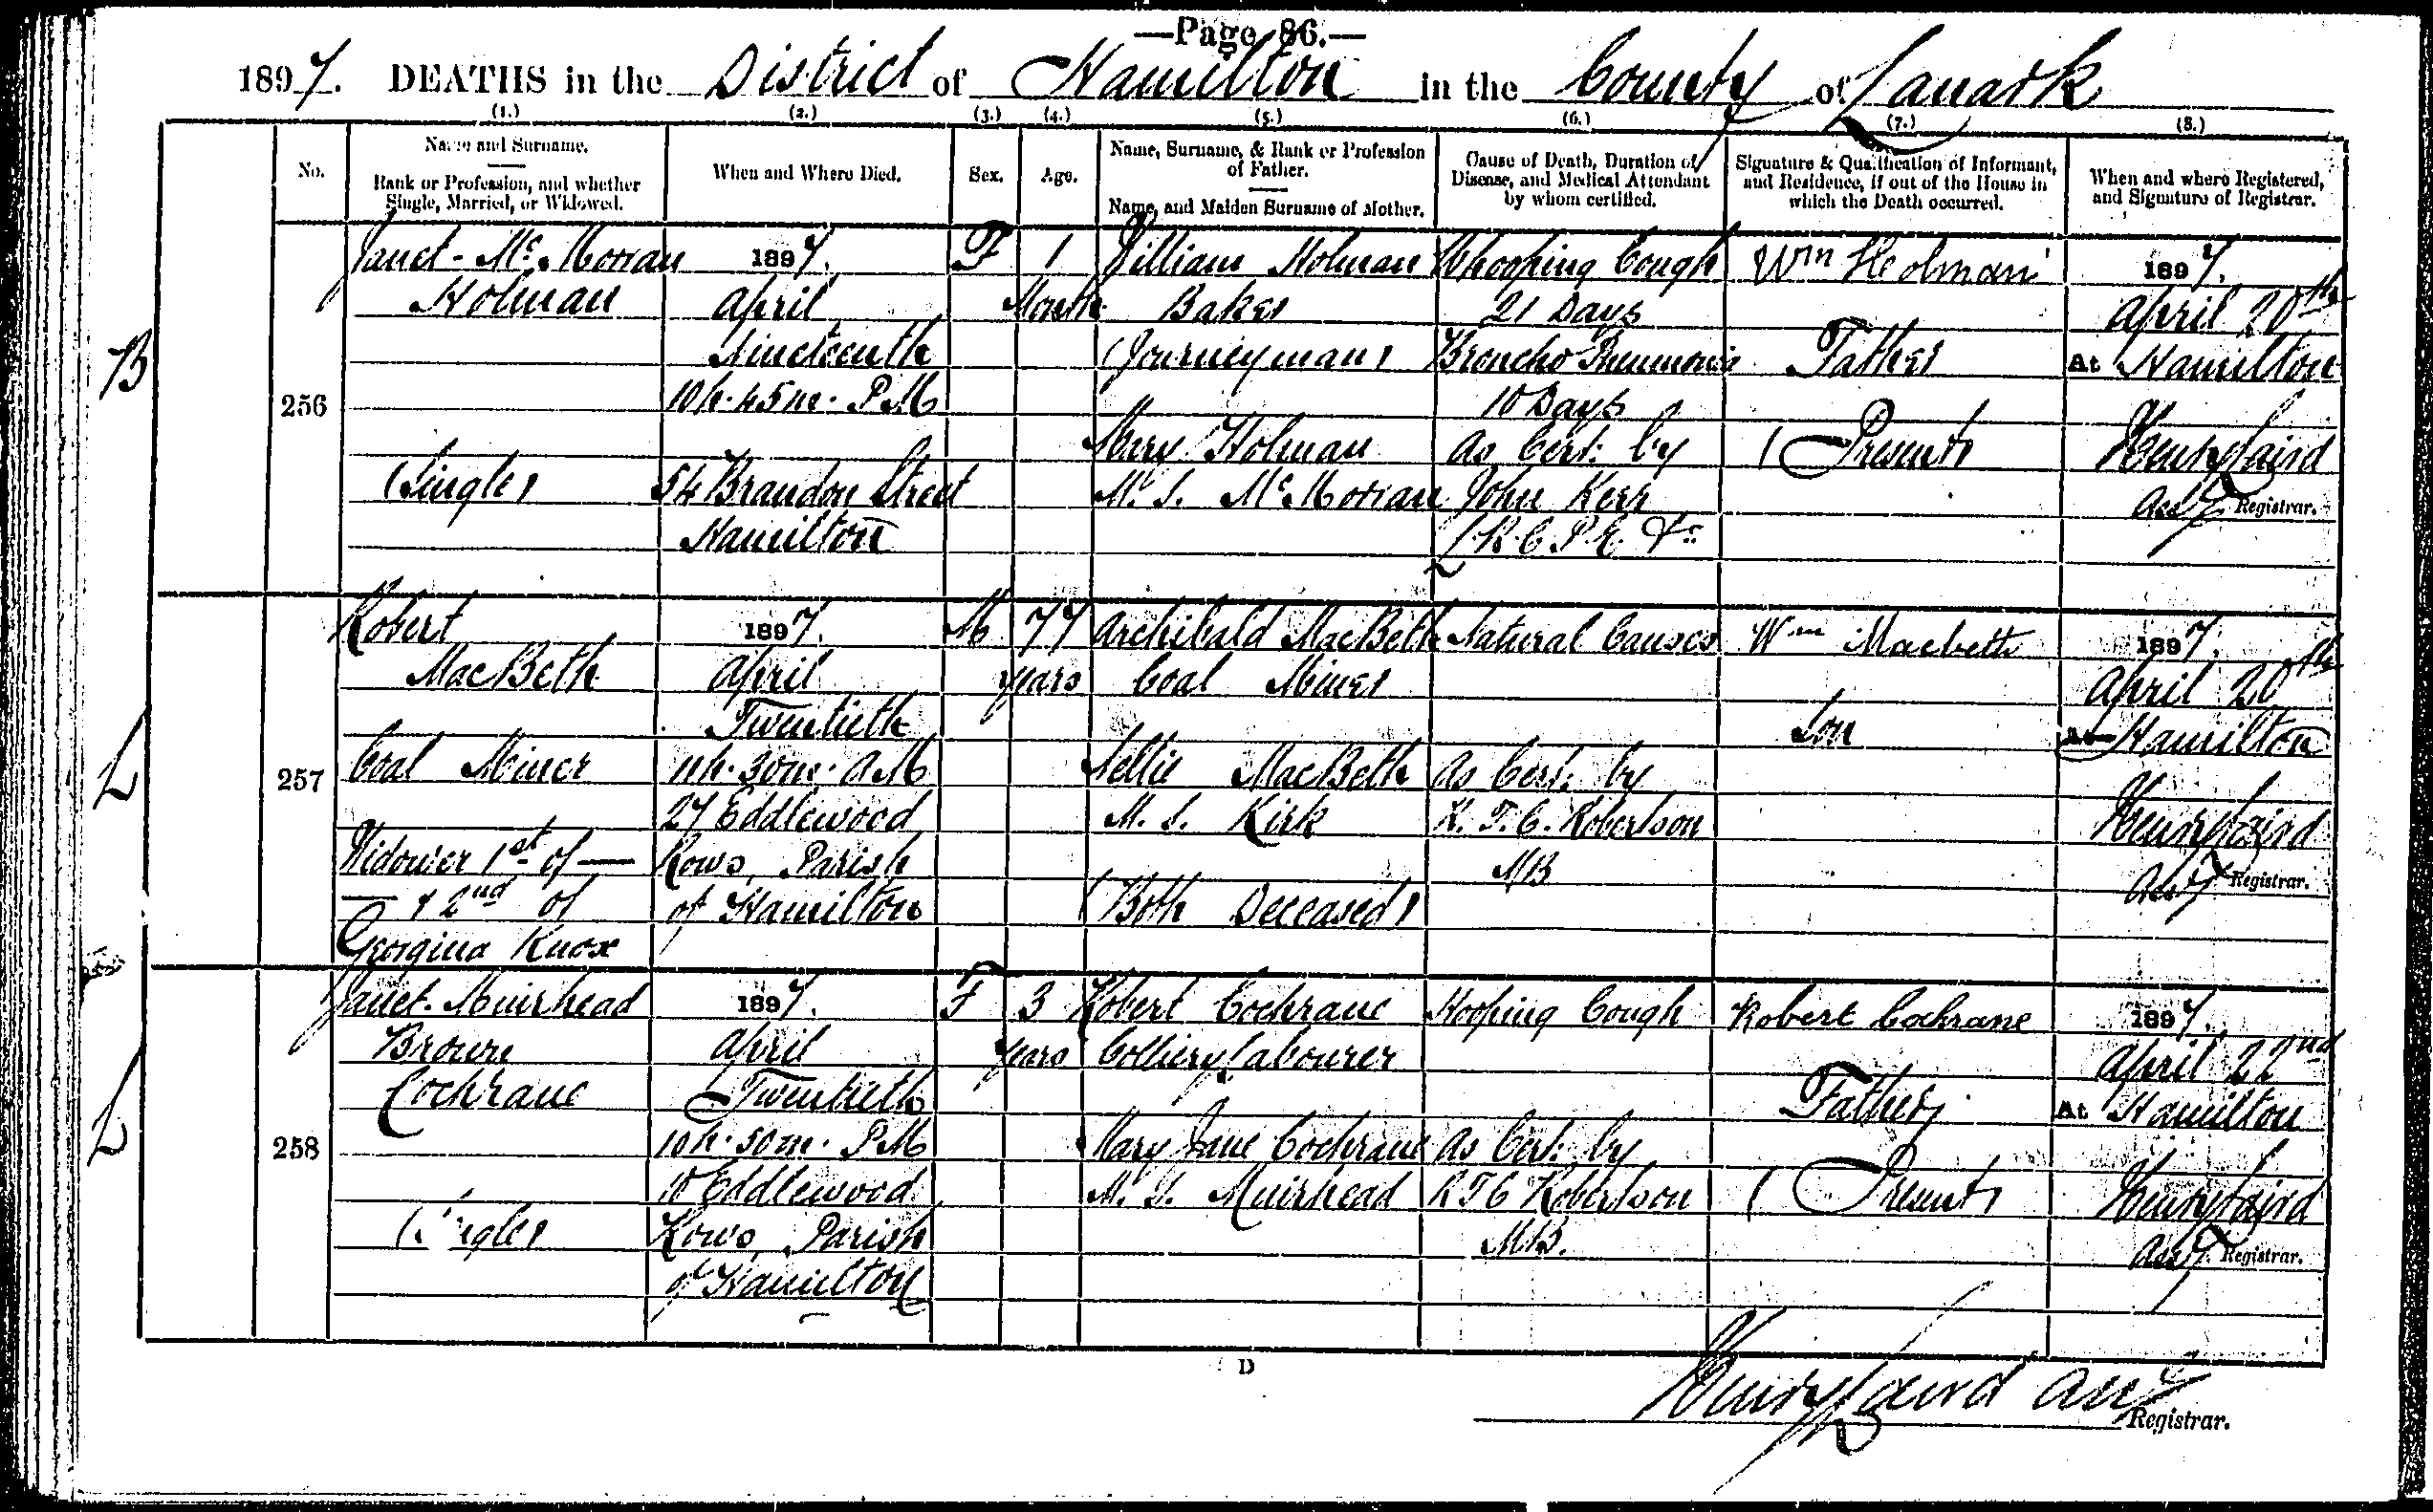 —Page 86.—
1897. DEATHS in the District of Hamilton in the County of Lanark
(1.) (2.) (3.) (4.) (5.) (6.) (7.) (8.)
No.
Name and Surname.
Rank or Profession, and whether
Single, Married, or Widowed.
When and Where Died.
Sex.
Age.
Name, Surname, & Rank or Profession
of Father.
Name, and Maiden Surname of Mother.
Cause of Death, Duration of
Disease, and Medical Attendant
by whom certified.
Signature & Qualification of Informant,
and Residence, if out of the House in
which the Death occurred.
When and where Registered,
and Signature of Registrar.
B
256
Janet Mc Morran
Holman
(Single)
1897.
April
Nineteenth
10h. 45m. P.M
54 Brandon Street
Hamilton
F
1
Month
William Holman
Baker
(Journeyman)
Mary Holman
M. S. McMorran
Whooping Cough
21 Days
Broncho Pneumonia
10 Days
As Cert. by
John Kerr
L.R.C.P.E. &c
Wm Holman
Father
(Present)
1897.
April 20th
At Hamilton
Henry Laird
Asst Registrar.
L
257
Robert
MacBeth
Coal Miner
Widower 1st of —
— & 2nd of
Georgina Knox
1897.
April
Twentieth
11h. 30m. A.M
27 Eddlewood
Rows, Parish
of Hamilton
M
77
years
Archibald MacBeth
Coal Miner
Nellie MacBeth
M. S. Kirk
(Both Deceased)
Natural Causes
As Cert. by
R. T. C. Robertson
MB
Wm Macbeth
Son
1897.
April 20th
At Hamilton
Henry Laird
Asst Registrar.
L
258
Janet Muirhead
Brown
Cochrane
(Single)
1897.
April
Twentieth
10h. 50m. P.M
10 Eddlewood
Rows, Parish
of Hamilton
F
3
years
Robert Cochrane
Colliery Labourer
Mary Jane Cochrane
M. S. Muirhead
Hooping Cough
As Cert. by
R T C Robertson
M.B.
Robert Cochrane
Father
(Present)
1897.
April 22nd
At Hamilton
Henry Laird
Asst Registrar.
D
Henry Laird Asst
Registrar.